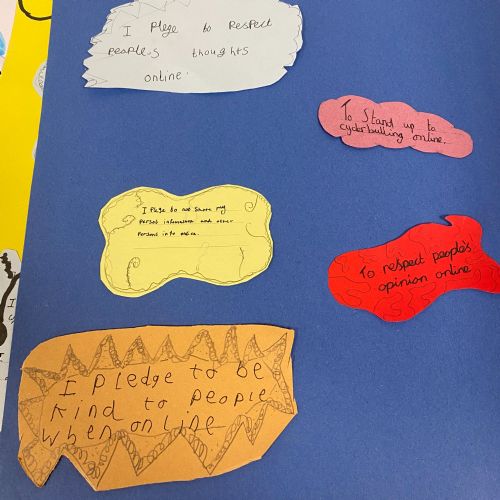 I Plege to Respect
people's thoughts
online.
To Stand up to
cyberbulling online.
I Plege to not share my
persnol information and other
persons info online.
To respect people's
opinion online
I pledge to be
kind to people
when online